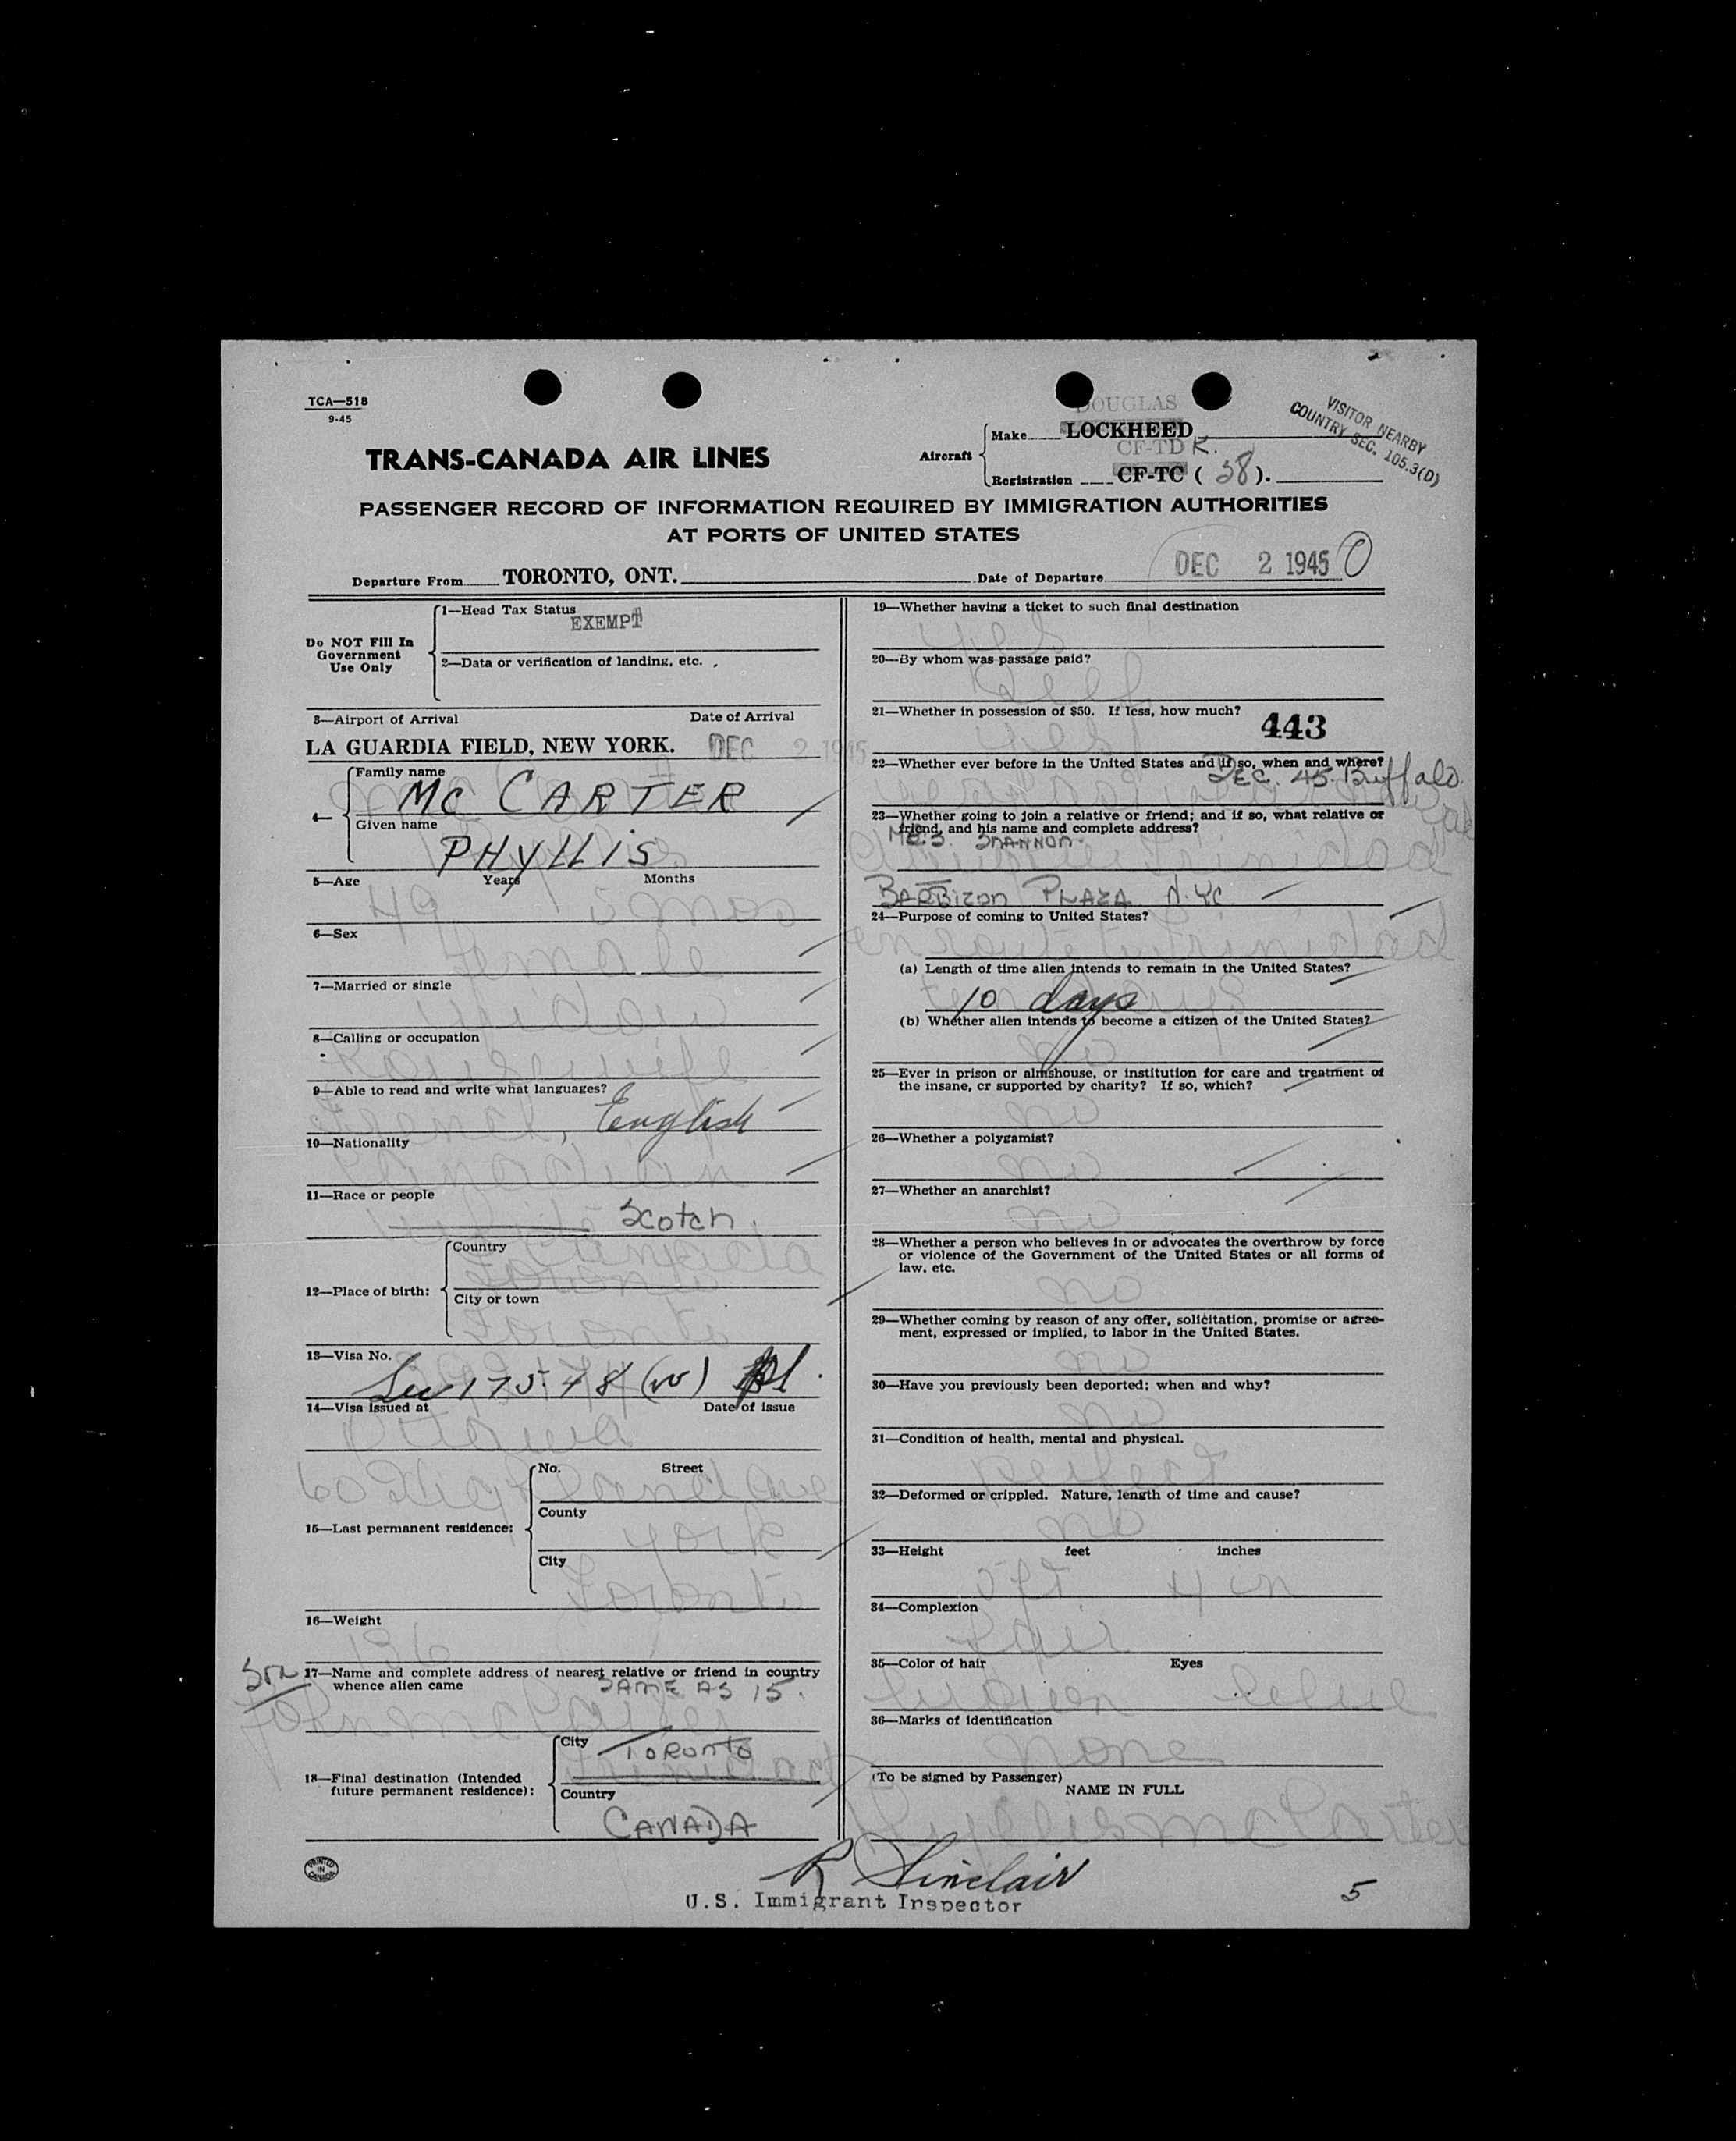 TCA—518
9-45
DOUGLAS
Aircraft
Make LOCKHEED
CF-TDK.
Registration CF-TC (38).
VISITOR NEARBY
COUNTRY SEC. 105.3(D)
TRANS-CANADA AIR LINES
PASSENGER RECORD OF INFORMATION REQUIRED BY IMMIGRATION AUTHORITIES
AT PORTS OF UNITED STATES
Departure From TORONTO, ONT. Date of Departure DEC 2 1945
Do NOT Fill In
Government
Use Only
1—Head Tax Status
EXEMPT
2—Data or verification of landing, etc.
3—Airport of Arrival Date of Arrival
LA GUARDIA FIELD, NEW YORK. DEC 2 1945
4—
Family name
MC CARTER
Given name
PHYLLIS
5—Age Years Months
49 5 mos
6—Sex
female
7—Married or single
widow
8—Calling or occupation
housewife
9—Able to read and write what languages?
French, English
10—Nationality
Canadian
11—Race or people
Scotch.
12—Place of birth:
Country
Canada
Toronto
City or town
Toronto
13—Visa No.
175748 (w)
14—Visa issued at Date of issue
Ottawa
15—Last permanent residence:
No. Street
60 Highland Ave
County
York
City
Toronto
16—Weight
136
17—Name and complete address of nearest relative or friend in country
whence alien came
SAME AS 15.
Son
John McCarter
18—Final destination (Intended
future permanent residence):
City
TORONTO
Trinidad
Country
CANADA
19—Whether having a ticket to such final destination
yes
20—By whom was passage paid?
Self
21—Whether in possession of $50. If less, how much?
443
yes
22—Whether ever before in the United States and if so, when and where?
DEC. 45. Buffalo.
23—Whether going to join a relative or friend; and if so, what relative or
friend, and his name and complete address?
MRS. SHANNON.
Trinidad
BARBIZON PLAZA N.YC
24—Purpose of coming to United States?
en route to Trinidad
(a) Length of time alien intends to remain in the United States?
10 days
(b) Whether alien intends to become a citizen of the United States?
no
25—Ever in prison or almshouse, or institution for care and treatment of
the insane, or supported by charity? If so, which?
no
26—Whether a polygamist?
no
27—Whether an anarchist?
no
28—Whether a person who believes in or advocates the overthrow by force
or violence of the Government of the United States or all forms of
law, etc.
no
29—Whether coming by reason of any offer, solicitation, promise or agree-
ment, expressed or implied, to labor in the United States.
no
30—Have you previously been deported; when and why?
no
31—Condition of health, mental and physical.
perfect
32—Deformed or crippled. Nature, length of time and cause?
no
33—Height feet inches
5 ft 4 in
34—Complexion
fair
35—Color of hair Eyes
brown blue
36—Marks of identification
none
(To be signed by Passenger)
NAME IN FULL
Phyllis McCarter
PRINTED
IN
CANADA
R Sinclair
U.S. Immigrant Inspector
5